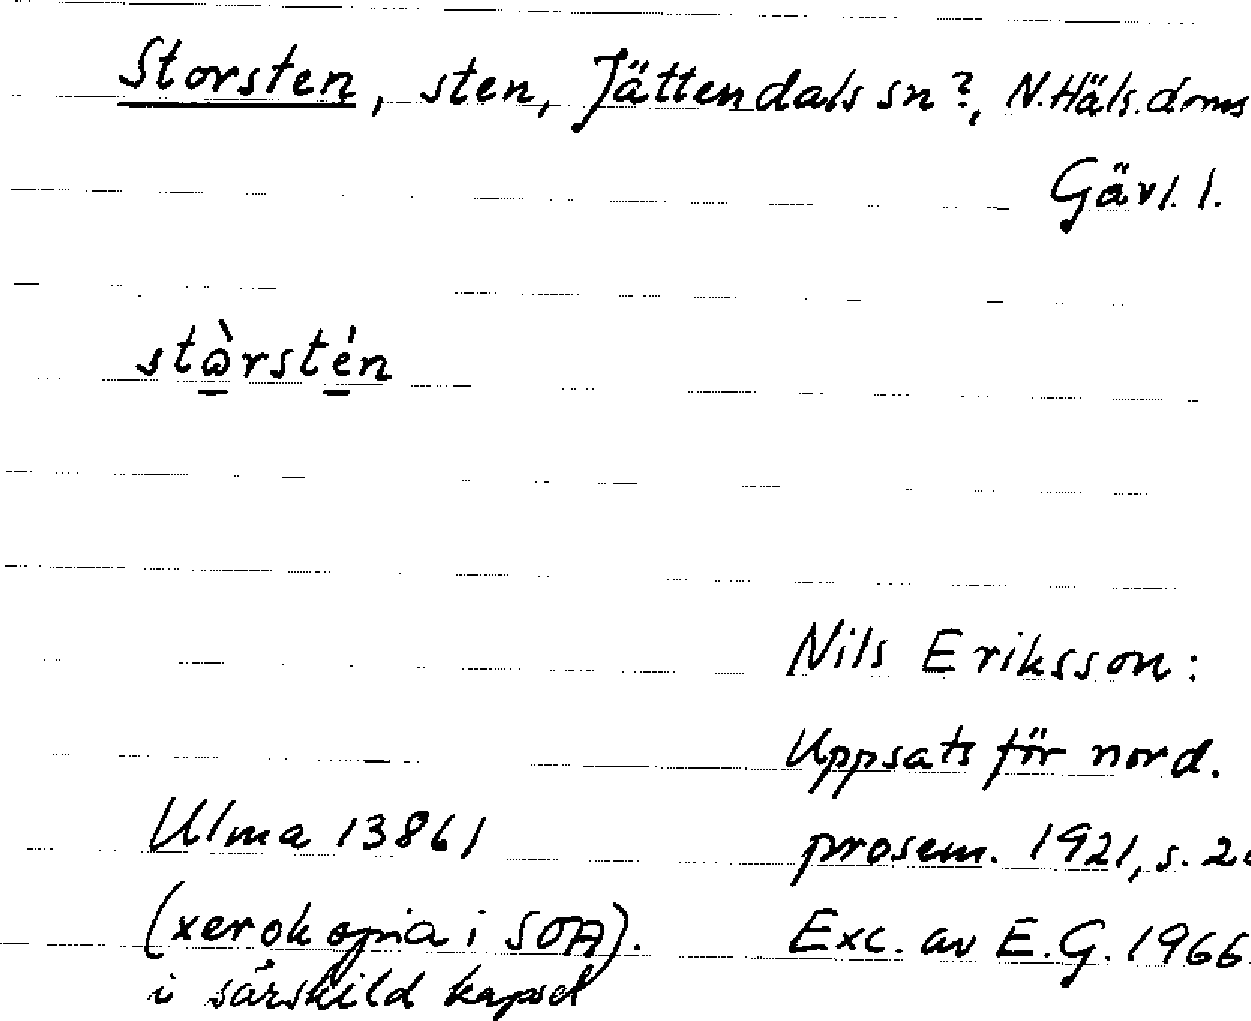 Storsten, sten, Jättendals sn?, N. Häls. doms
Gävl. l.
stὼ̲rsté̲n
Nils Eriksson:
Uppsats för nord.
Ulma 13861
prosem. 1921, s.
(xerokopia i SOA).
Exc. av E.G. 1966.
i särskild kapsel